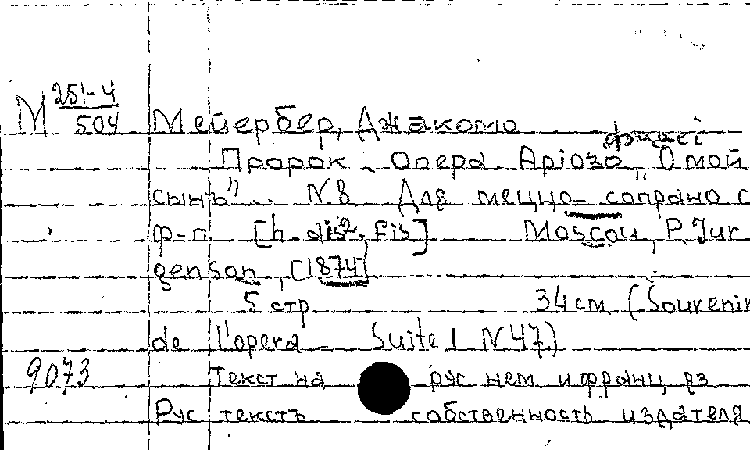 М 251-4/504 Мейербер, Джакомо
Пророк. Опера. Аріозо „О мой
сынъ". N.8 Для меццо-сопрано с
ф-п. [h. dis². Fis] Moscou, P. Jur
genson, [1874]
5 стр. 34 см. (Souvenir
de l'opera. Suite I N 47)
9073 Текст на рус. нем. и франц. яз.
Рус. текстъ собственность издателя